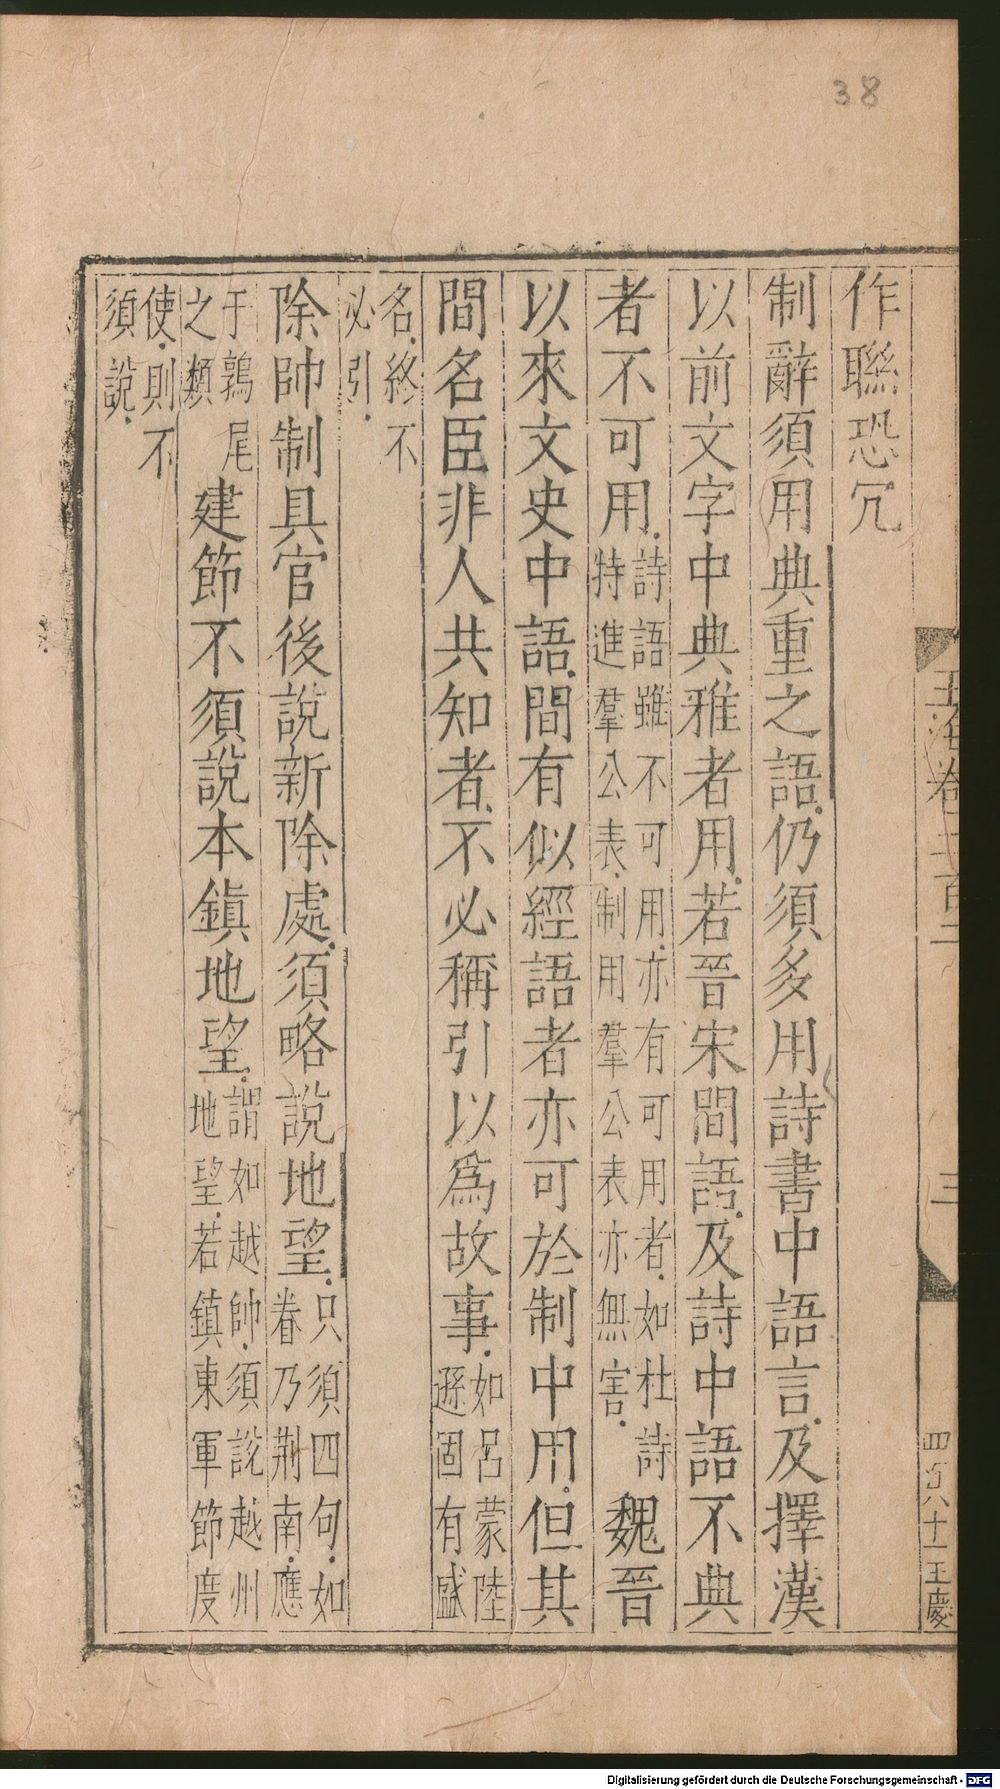 38
作聯恐冗
制辭須用典重之語仍須多用詩書中語言及擇漢
以前文字中典雅者用若晉宋間語及詩中語不典
者不可用詩語雖不可用亦有可用者如杜詩特進羣公表制用羣公表亦無害魏晉
以來文史中語間有似經語者亦可於制中用但其
間名臣非人共知者不必稱引以為故事如呂蒙陸遜固有盛
名終不必引
除帥制具官後說新除處須略說地望只須四句如眷乃荆南應
于鶉尾之類建節不須說本鎮地望謂如越帥須說越州地望若鎮東軍節度
使則不須說
玉海卷二百二
三
四百六十一王慶
Digitalisierung gefördert durch die Deutsche Forschungsgemeinschaft - DFG